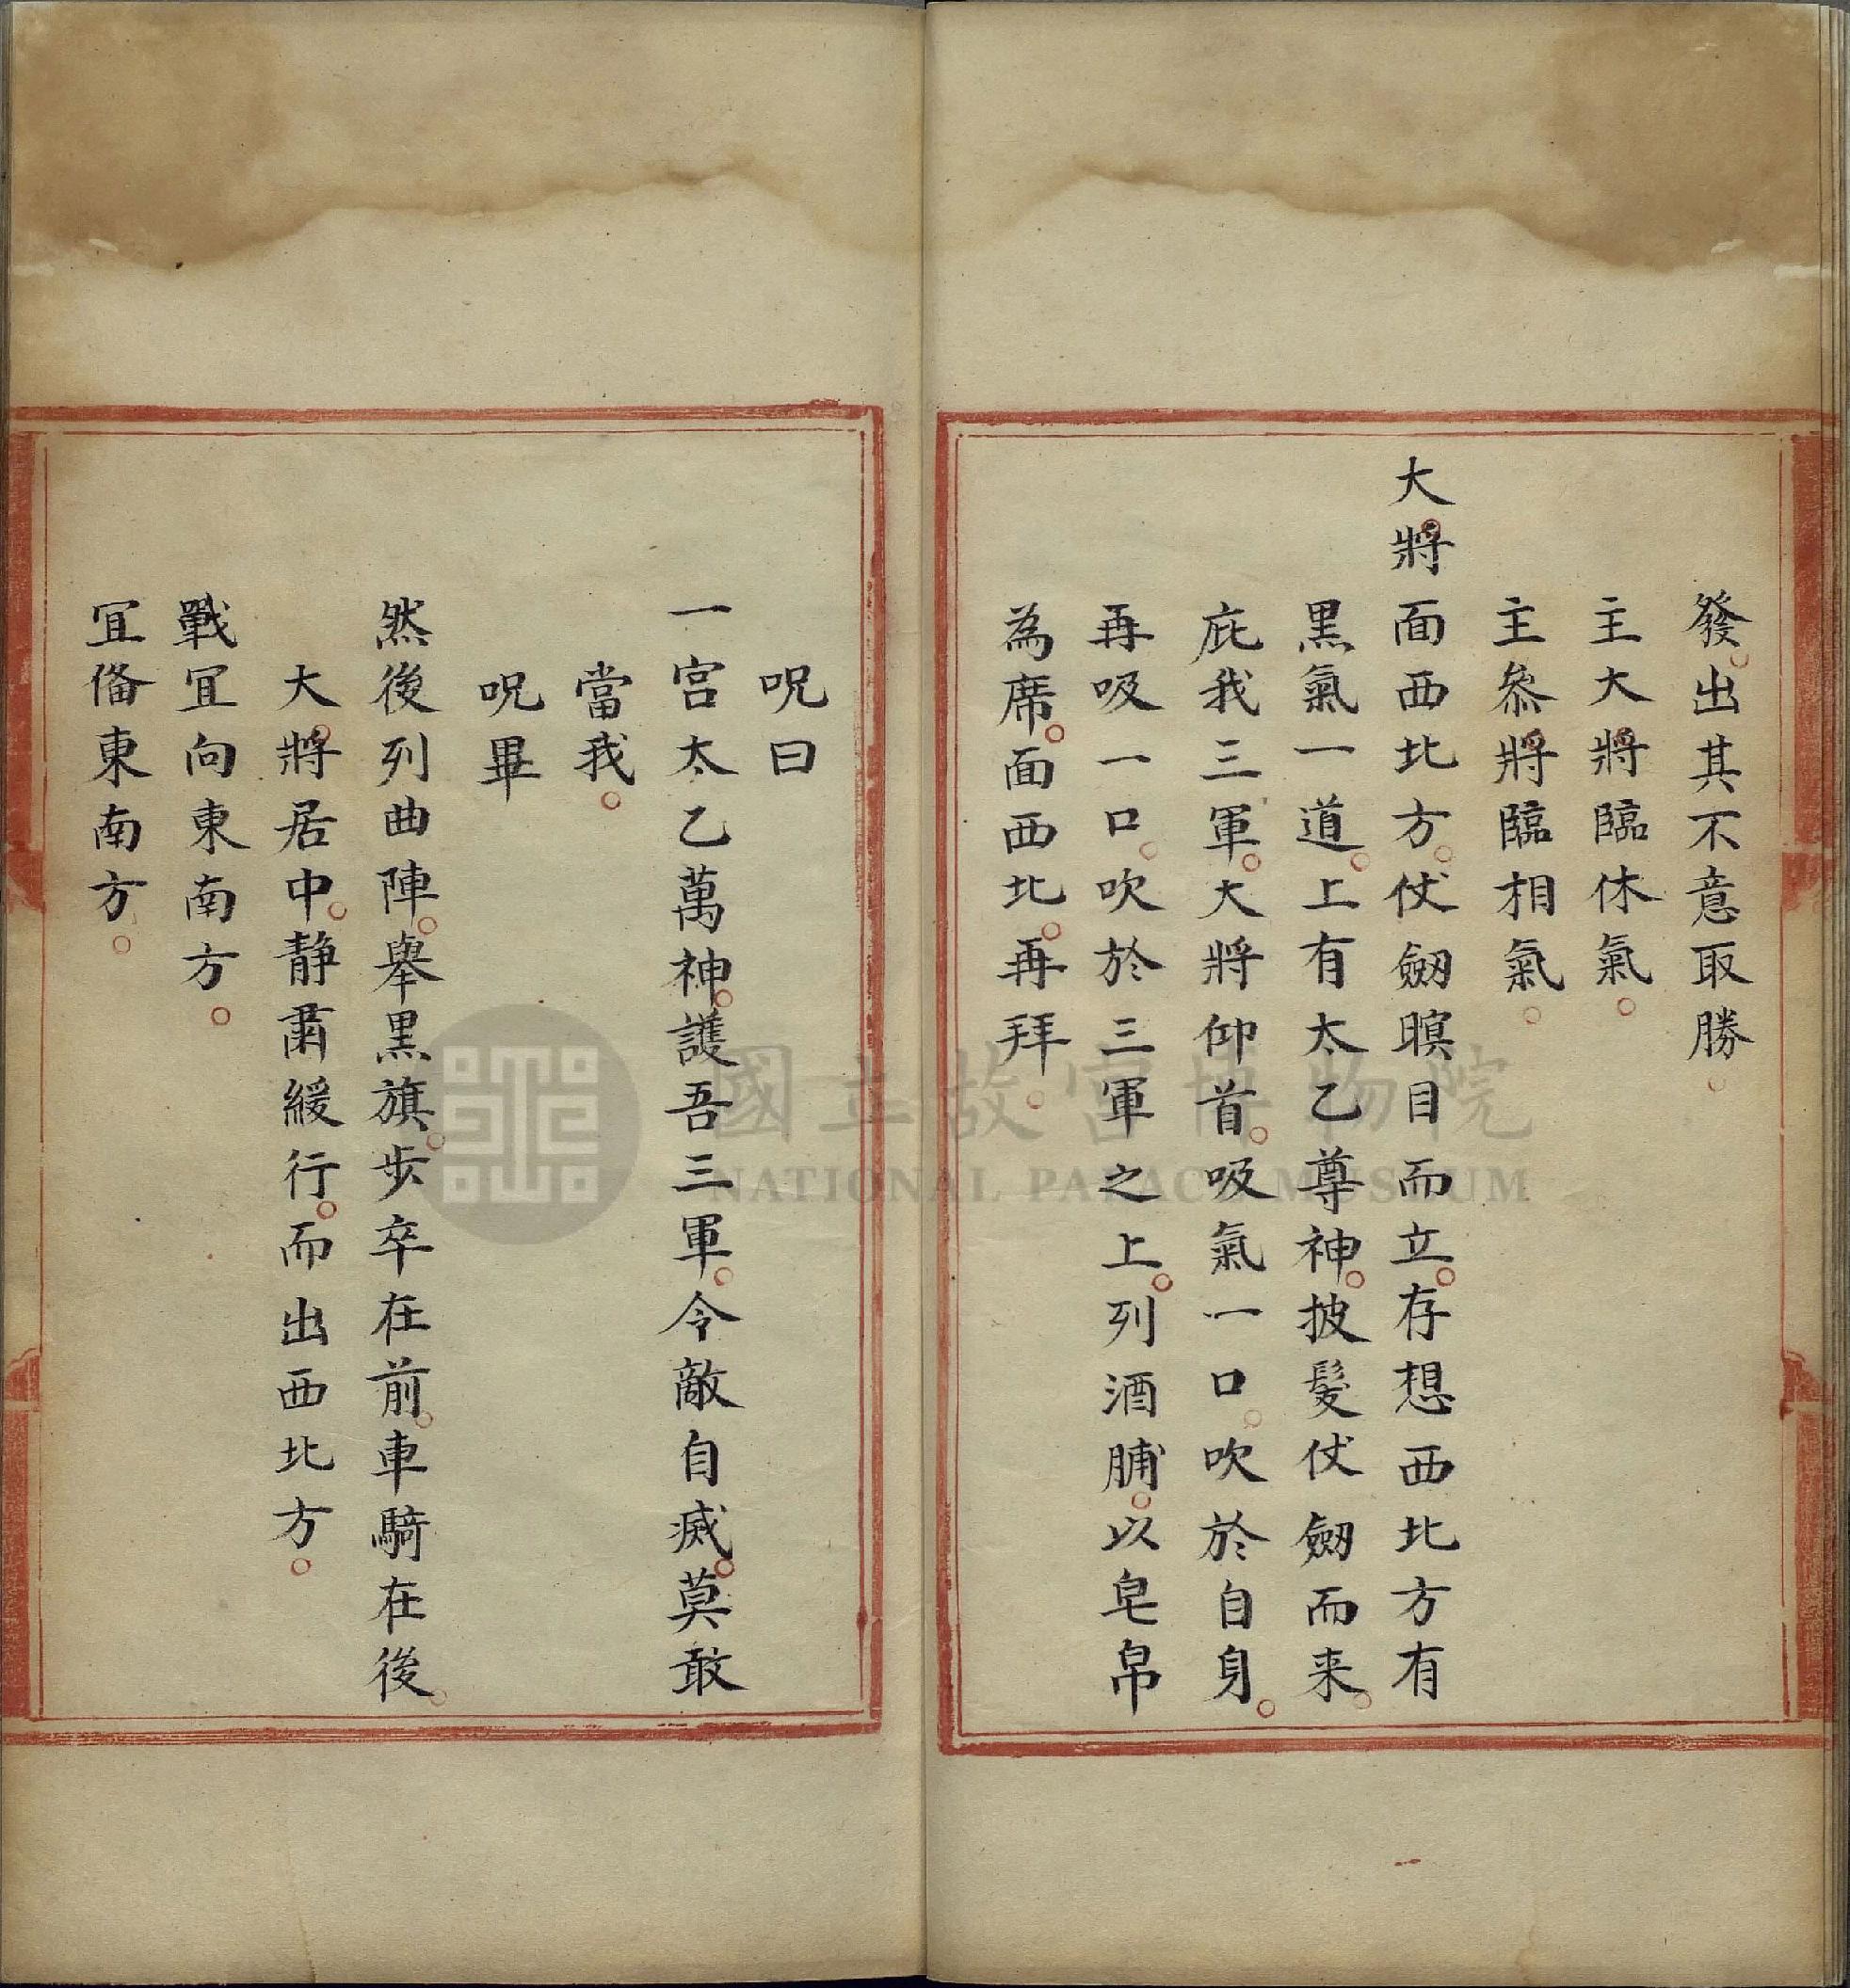 發。出其不意取勝。
主大將臨休氣。
主叅將臨相氣。
大將面西北方。仗劔瞑目而立。存想西北方有
黑氣一道。上有太乙尊神。披髮仗劔而来。
庇我三軍。大將仰首。吸氣一口。吹於自身。
再吸一口。吹於三軍之上。列酒脯。以皂帛
為席。面西北。再拜。
呪曰
一宫太乙萬神。護吾三軍。令敵自滅。莫敢
當我。
呪畢
然後列曲陣。舉黑旗。步卒在前。車騎在後。
大將居中。静肅緩行。而出西北方。
戰冝向東南方。
冝俻東南方。
國立故宮博物院
NATIONAL PALACE MUSEUM